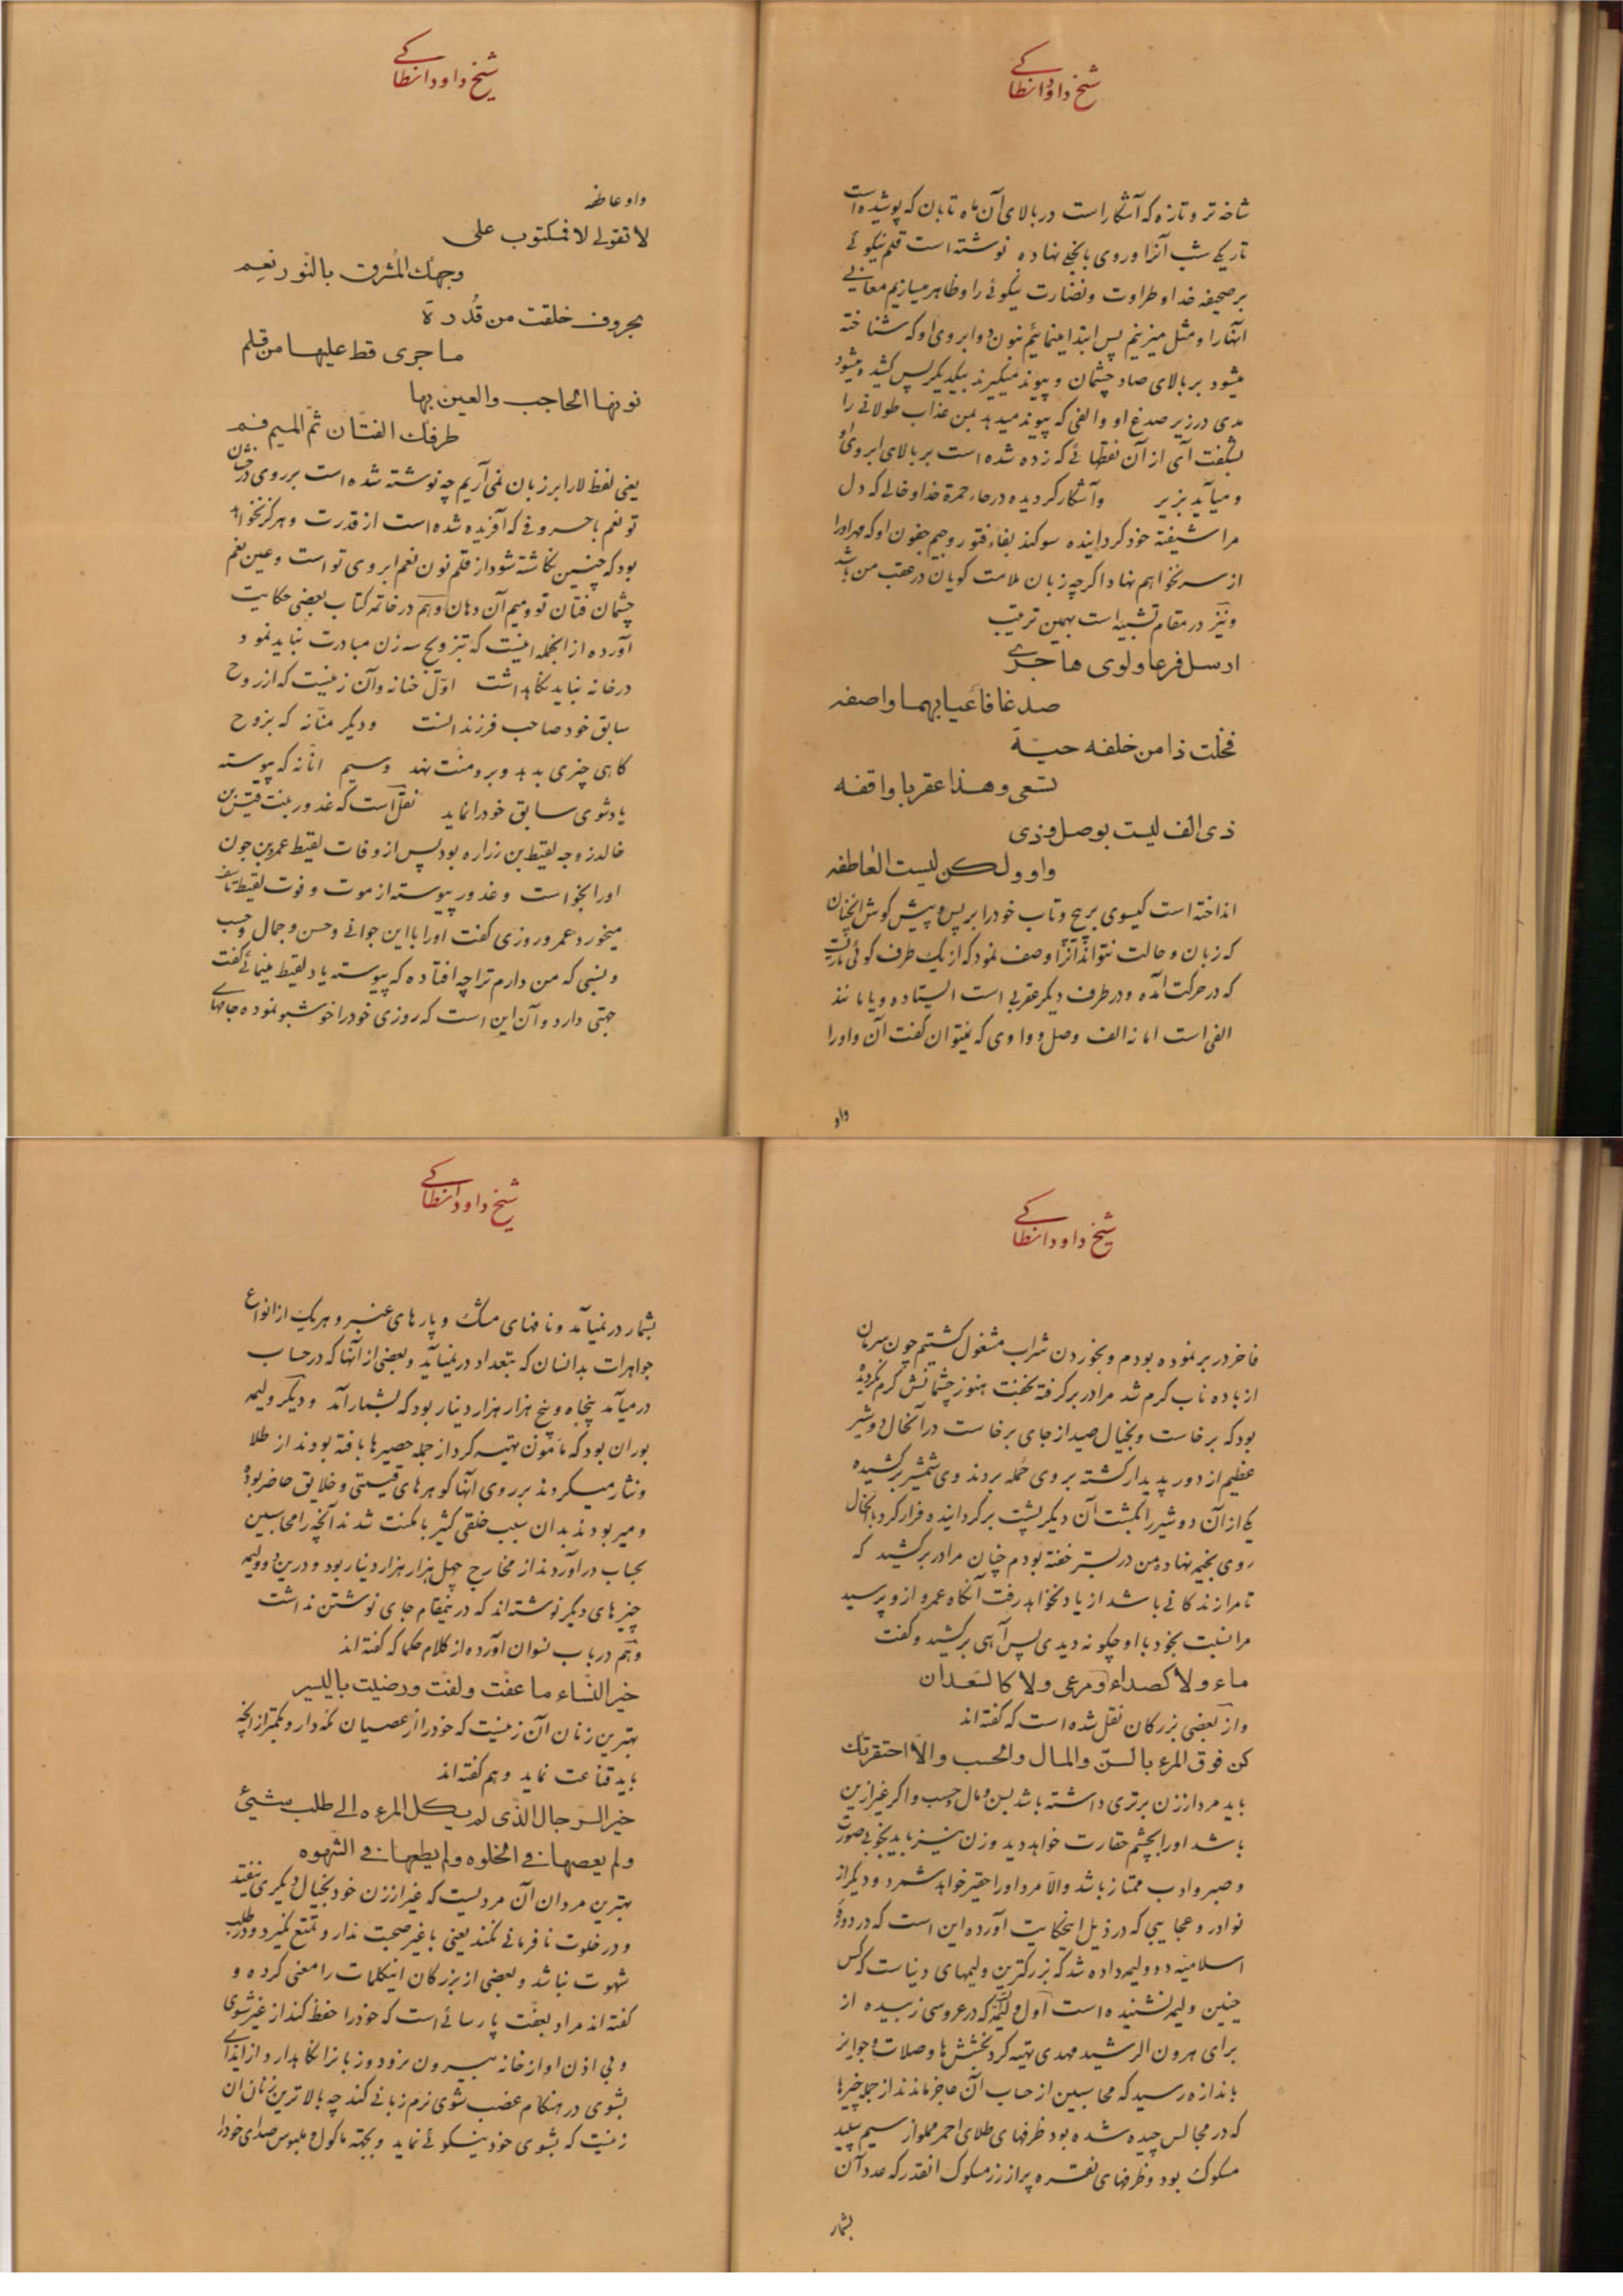 شیخ داود انطاکی
شاخه تر و تازه که آشکار است در بالای آن ماه تابان که پوشیده است
تاریکی شب آنرا و روی بانجلی نهاده نوشته است قلم نیکوئی
بر صحیفه خد او طراوت و نضارت نیکوئی را و ظاهر میسازیم معانی
آنها را و مثل میزنیم پس ابتدا مینمائیم بنون دو ابروی او که شناخته
میشود بر بالای صاد چشمان و پیوند میگیرند بیکدیگر پس کشیده میشود
مدی در زیر صدغ او و الفی که پیوند میدهد بمن عذاب طولانی را
بشگفت آی از آن نقطهائی که زده شده است بر بالای ابروی او
و میآید بزیر و آشکار گردیده در حاء حمرة خد او خالی که دل
مرا شیفته خود گردانیده سوگند بفاء فتور و جیم جفون او که مهر او را
از سر نخواهم نهاد اگرچه زبان ملامت گویان در عقب من باشد
و نیز در مقام تشبیه است بهمین ترتیب
ارسل فرعا ولوی هاجری
صدغا فاعیا بهما واصفه
فخلت ذا من خلفه حیة
تسعی وهذا عقربا واقفه
ذی الف لیست بوصل وذی
واو ولکن لیست العاطفه
انداخته است گیسوی پر پیچ و تاب خود را بر پس و پیش گوش آنچنان
که زبان و حالت نتواند آنرا وصف نمود که از یک طرف گوئی ماریست
که در حرکت آمده و در طرف دیگر عقربی است ایستاده و یا مانند
الفی است اما نه الف وصل و واوی که نمیتوان گفت آن واو را
واو
شیخ داود انطاکی
واو عاطفه
لا تقولی لا فمکتوب علی
وجهک المشرق بالنّور نعم
بحروف خلقت من قُدرة
ما جری قط علیها من قلم
نونها الحاجب والعین بها
طرفک الفتّان ثمّ المیم فم
یعنی لفظ لا را بر زبان نمی‌آریم چه نوشته شده است بر روی درخشان
تو نعم با حروفی که آفریده شده است از قدرت و هرگز نخواهد
بود که چنین نگاشته شود از قلم نون نعم ابروی تو است و عین نعم
چشمان فتان تو و میم آن دهان و هم در خاتمه کتاب بعضی حکایت
آورده از آنجمله اینست که بتزویج سه زن مبادرت نباید نمود
در خانه نباید نگاهداشت اوّل حنانه و آن زنیست که از زوج
سابق خود صاحب فرزند است و دیگر منّانه که بزوج
گاهی چیزی بدهد و بر او منّت نهد و سیم انّانه که پیوسته
یاد شوی سابق خود را نماید نقل است که غدور بنت قیس بن
خالد زوجه لقیط بن زراره بود پس از وفات لقیط عمرو بن جون
او را بخواست و غدور پیوسته از موت و فوت لقیط تأسف
میخورد عمرو روزی گفت او را با این جوانی و حسن و جمال و حسب
و نسبی که من دارم ترا چه افتاده که پیوسته یاد لقیط مینمائی گفت
جهتی دارد و آن این است که روزی خود را خوشبو نموده جامهای
شیخ داود انطاکی
فاخر در بر نموده بودم و بخوردن شراب مشغول گشتیم چون سرمان
از باده ناب گرم شد مرا در بر گرفته بخفت هنوز چشمانش گرم نگردیده
بود که برخاست و بخیال صید از جای برخاست در آنحال دو شیر
عظیم از دور پدیدار گشته بر وی حمله بردند وی شمشیر برکشیده
یکی از آن دو شیر را بکشت آن دیگر پشت برگردانیده فرار کرد با آنحال
روی بخیمه نهاده من در بستر خفته بودم چنان مرا در بر کشید که
تا مرا زندگانی باشد از یاد نخواهد رفت آنگاه عمرو از او پرسید
مرا نسبت بخود با او چگونه دیدی پس آهی برکشید و گفت
ماء ولا کصداء ومرعی ولا کالسّعدان
و از بعضی بزرگان نقل شده است که گفته‌اند
کن فوق المرء بالسنّ والمال والحسب والّا احتقرتک
باید مرد از زن برتری داشته باشد بسن و مال و حسب و اگر غیر از این
باشد او را بچشم حقارت خواهد دید و زن نیز باید بخوبی صورت
و صبر و ادب ممتاز باشد والّا مرد او را حقیر خواهد شمرد و دیگر از
نوادر و عجایبی که در ذیل اینحکایت آورده این است که در دوره
اسلامیّه دو ولیمه داده شد که بزرگترین ولیمهای دنیاست که کس
چنین ولیمه نشنیده است اول ولیمه که در عروسی زبیده از
برای هرون الرشید مهدی تهیه کرد بخشش‌ها و صلات و جوایز
باندازه رسید که محاسبین از حساب آن عاجز ماندند از جمله چیزها
که در مجالس چیده شده بود ظرفهای طلای احمر مملو از سیم سپید
مسکوک بود و ظرفهای نقره پر از زر مسکوک آنقدر که عدد آن
بشمار
شیخ داود انطاکی
بشمار در نمیآمد و نافهای مشک و پارهای عنبر و هر یک از انواع
جواهرات بدانسان که بتعداد در نمیآید و بعضی از آنها که در حساب
در میآمد پنجاه و پنج هزار هزار دینار بود که بشمار آمد و دیگر ولیمه
بوران بود که مأمون تهیه کرد از جمله حصیرها بافته بودند از طلا
و نثار میکردند بر روی آنها گوهرهای قیمتی و خلایق حاضر بوده
و میربودند بدان سبب خلقی کثیر با مکنت شدند آنچه را محاسبین
بحساب درآوردند از مخارج چهل هزار هزار دینار بود و در این دو ولیمه
چیزهای دیگر نوشته‌اند که در اینمقام جای نوشتن نداشت
و هم در باب نسوان آورده از کلام حکما که گفته‌اند
خیر النّساء ما عفّت ولفّت ورضیت بالیسیر
بهترین زنان آن زنیست که خود را از عصیان نگه دارد و بکمتر از آنچه
باید قناعت نماید و هم گفته‌اند
خیر الرّجال الّذی لم یکل المرءه الی طلب شیئ
ولم یعصها فی الخلوه ولم یطعها فی الشّهوه
بهترین مردان آن مردیست که غیر از زن خود بخیال دیگری نیفتد
و در خلوت نافرمانی نکند یعنی با غیر صحبت ندارد و تمتع نگیرد و در طلب
شهوت نباشد و بعضی از بزرگان اینکلمات را معنی کرده و
گفته‌اند مراد بعفّت پارسائی است که خود را حفظ کند از غیر شوی
و بی اذن او از خانه بیرون نرود و زبانرا نگاهدارد از ایذای
بشوی در هنگام غضب شوی نرم زبانی کند چه بالاترین زنان آن
زنیست که بشوی خود نیکوئی نماید و بجهته ماکول و ملبوس صدای خود را